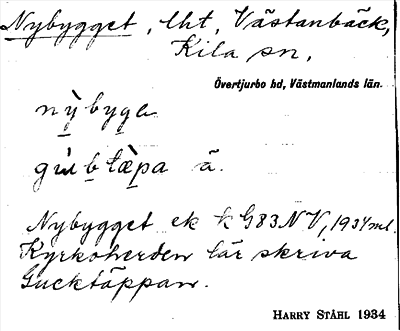 Nybygget, lht, Västanbäck,
Kila sn,
Övertjurbo hd, Västmanlands län.
nỳbyga
gùbtæ̀pa ä.
Nybygget ek k G83NV, 1934 ml.
Kyrkoherden lär skriva
Gucktäppan.
HARRY STÅHL 1934